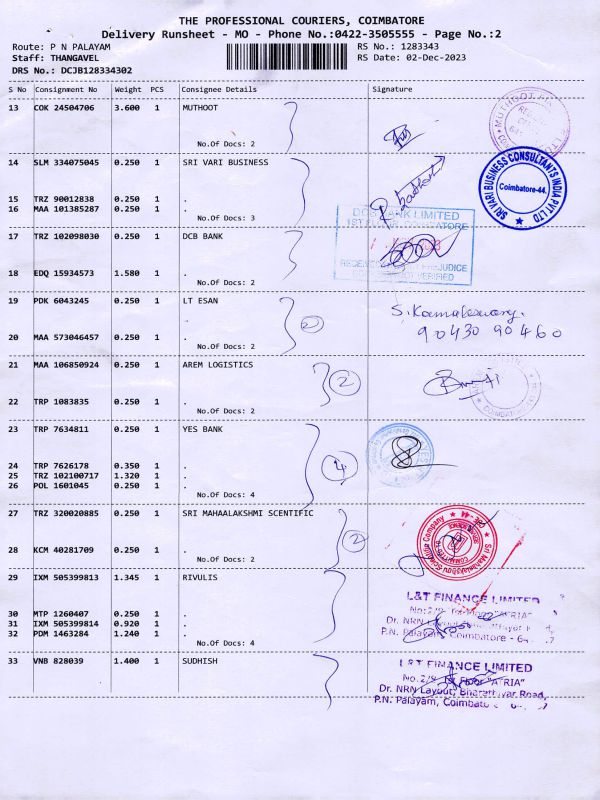 THE PROFESSIONAL COURIERS, COIMBATORE
Delivery Runsheet - MO - Phone No.:0422-3505555 - Page No.:2
Route: P N PALAYAM
RS No.: 1283343
Staff: THANGAVEL
RS Date: 02-Dec-2023
DRS No.: DCJB128334302
S No Consignment No Weight PCS Consignee Details Signature
13 COK 24504706 3.600 1 MUTHOOT
No.Of Docs: 2
14 SLM 334075045 0.250 1 SRI VARI BUSINESS
SRI VARI BUSINESS CONSULTANTS INDIA PVT LTD
Coimbatore-44.
15 TRZ 90012838 0.250 1 .
16 MAA 101385287 0.250 1 .
No.Of Docs: 3
DCB BANK LIMITED
1ST FLOOR, COIMBATORE
17 TRZ 102098030 0.250 1 DCB BANK
18 EDQ 15934573 1.580 1 .
No.Of Docs: 2
19 PDK 6043245 0.250 1 LT ESAN
S. Kamaleswary.
90430 90460
2
20 MAA 573046457 0.250 1 .
No.Of Docs: 2
21 MAA 106850924 0.250 1 AREM LOGISTICS
2
22 TRP 1083835 0.250 1 .
No.Of Docs: 2
23 TRP 7634811 0.250 1 YES BANK
4
24 TRP 7626178 0.350 1 .
25 TRZ 102100717 1.320 1 .
26 POL 1601045 0.250 1 .
No.Of Docs: 4
27 TRZ 320020885 0.250 1 SRI MAHAALAKSHMI SCENTIFIC
2
28 KCM 40281709 0.250 1 .
No.Of Docs: 2
29 IXM 505399813 1.345 1 RIVULIS
L&T FINANCE LIMITED
30 MTP 1260407 0.250 1 .
31 IXM 505399814 0.920 1 .
32 PDM 1463284 1.240 1 .
P.N. Palayam, Coimbatore - 6
No.Of Docs: 4
33 VNB 828039 1.400 1 SUDHISH
L&T FINANCE LIMITED
No.2/9 1st Floor "ATRIA"
Dr. NRN Layout, Bharathiyar Road,
P.N. Palayam, Coimbato